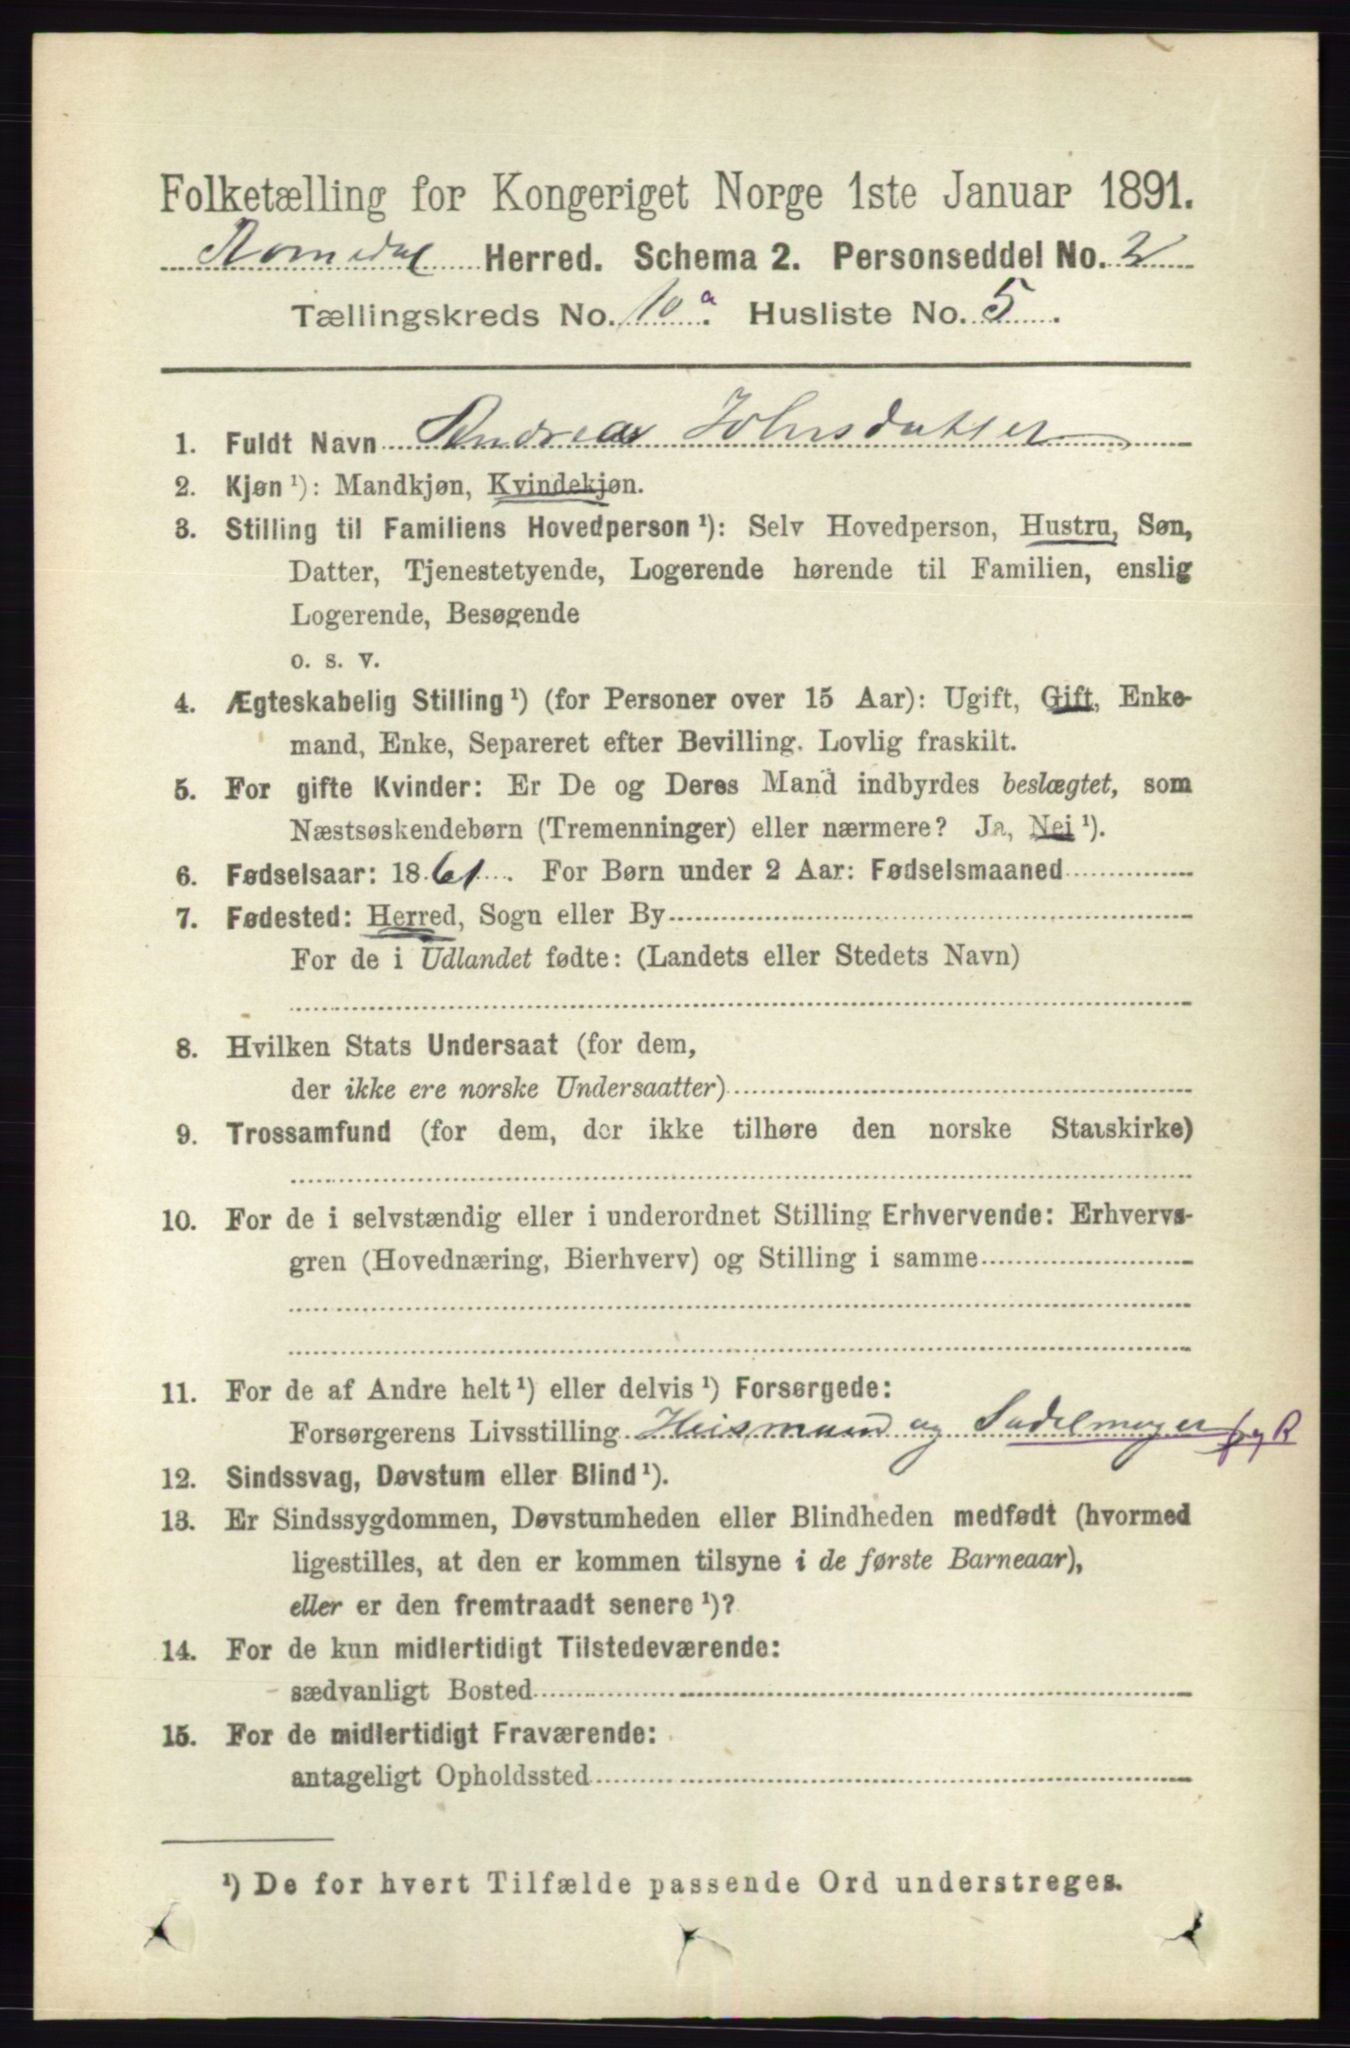 Folketælling for Kongeriget Norge 1ste Januar 1891.
Romedal Herred. Schema 2. Personseddel No. 2
Tællingskreds No. 10 a. Husliste No. 5.
1. Fuldt Navn Andrea Johnsdatter
2. Kjøn ¹): Mandkjøn, Kvindekjøn.
3. Stilling til Familiens Hovedperson ¹): Selv Hovedperson, Hustru, Søn,
Datter, Tjenestetyende, Logerende hørende til Familien, enslig
Logerende, Besøgende
o. s. v.
4. Ægteskabelig Stilling ¹) (for Personer over 15 Aar): Ugift, Gift, Enke-
mand, Enke, Separeret efter Bevilling. Lovlig fraskilt.
5. For gifte Kvinder: Er De og Deres Mand indbyrdes beslægtet, som
Næstsøskendebørn (Tremenninger) eller nærmere? Ja, Nei ¹).
6. Fødselsaar: 1861. For Børn under 2 Aar: Fødselsmaaned
7. Fødested: Herred, Sogn eller By
For de i Udlandet fødte: (Landets eller Stedets Navn)
8. Hvilken Stats Undersaat (for dem,
der ikke ere norske Undersaatter)
9. Trossamfund (for dem, der ikke tilhøre den norske Statskirke)
10. For de i selvstændig eller i underordnet Stilling Erhvervende: Erhvervs-
gren (Hovednæring, Bierhverv) og Stilling i samme
11. For de af Andre helt ¹) eller delvis ¹) Forsørgede:
Forsørgerens Livsstilling Husmand og Sadelmager
12. Sindssvag, Døvstum eller Blind ¹).
13. Er Sindssygdommen, Døvstumheden eller Blindheden medfødt (hvormed
ligestilles, at den er kommen tilsyne i de første Barneaar),
eller er den fremtraadt senere ¹)?
14. For de kun midlertidigt Tilstedeværende:
sædvanligt Bosted
15. For de midlertidigt Fraværende:
antageligt Opholdssted
¹) De for hvert Tilfælde passende Ord understreges.